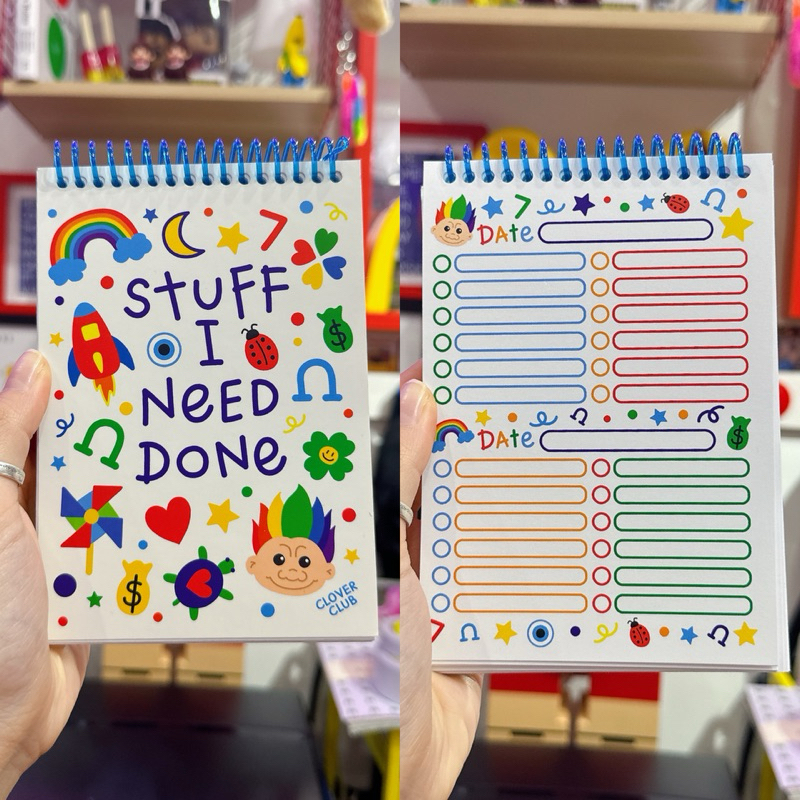 STUFF
I
NEED
DONE
$
$
CLOVER
CLUB
DATE
DATE
$